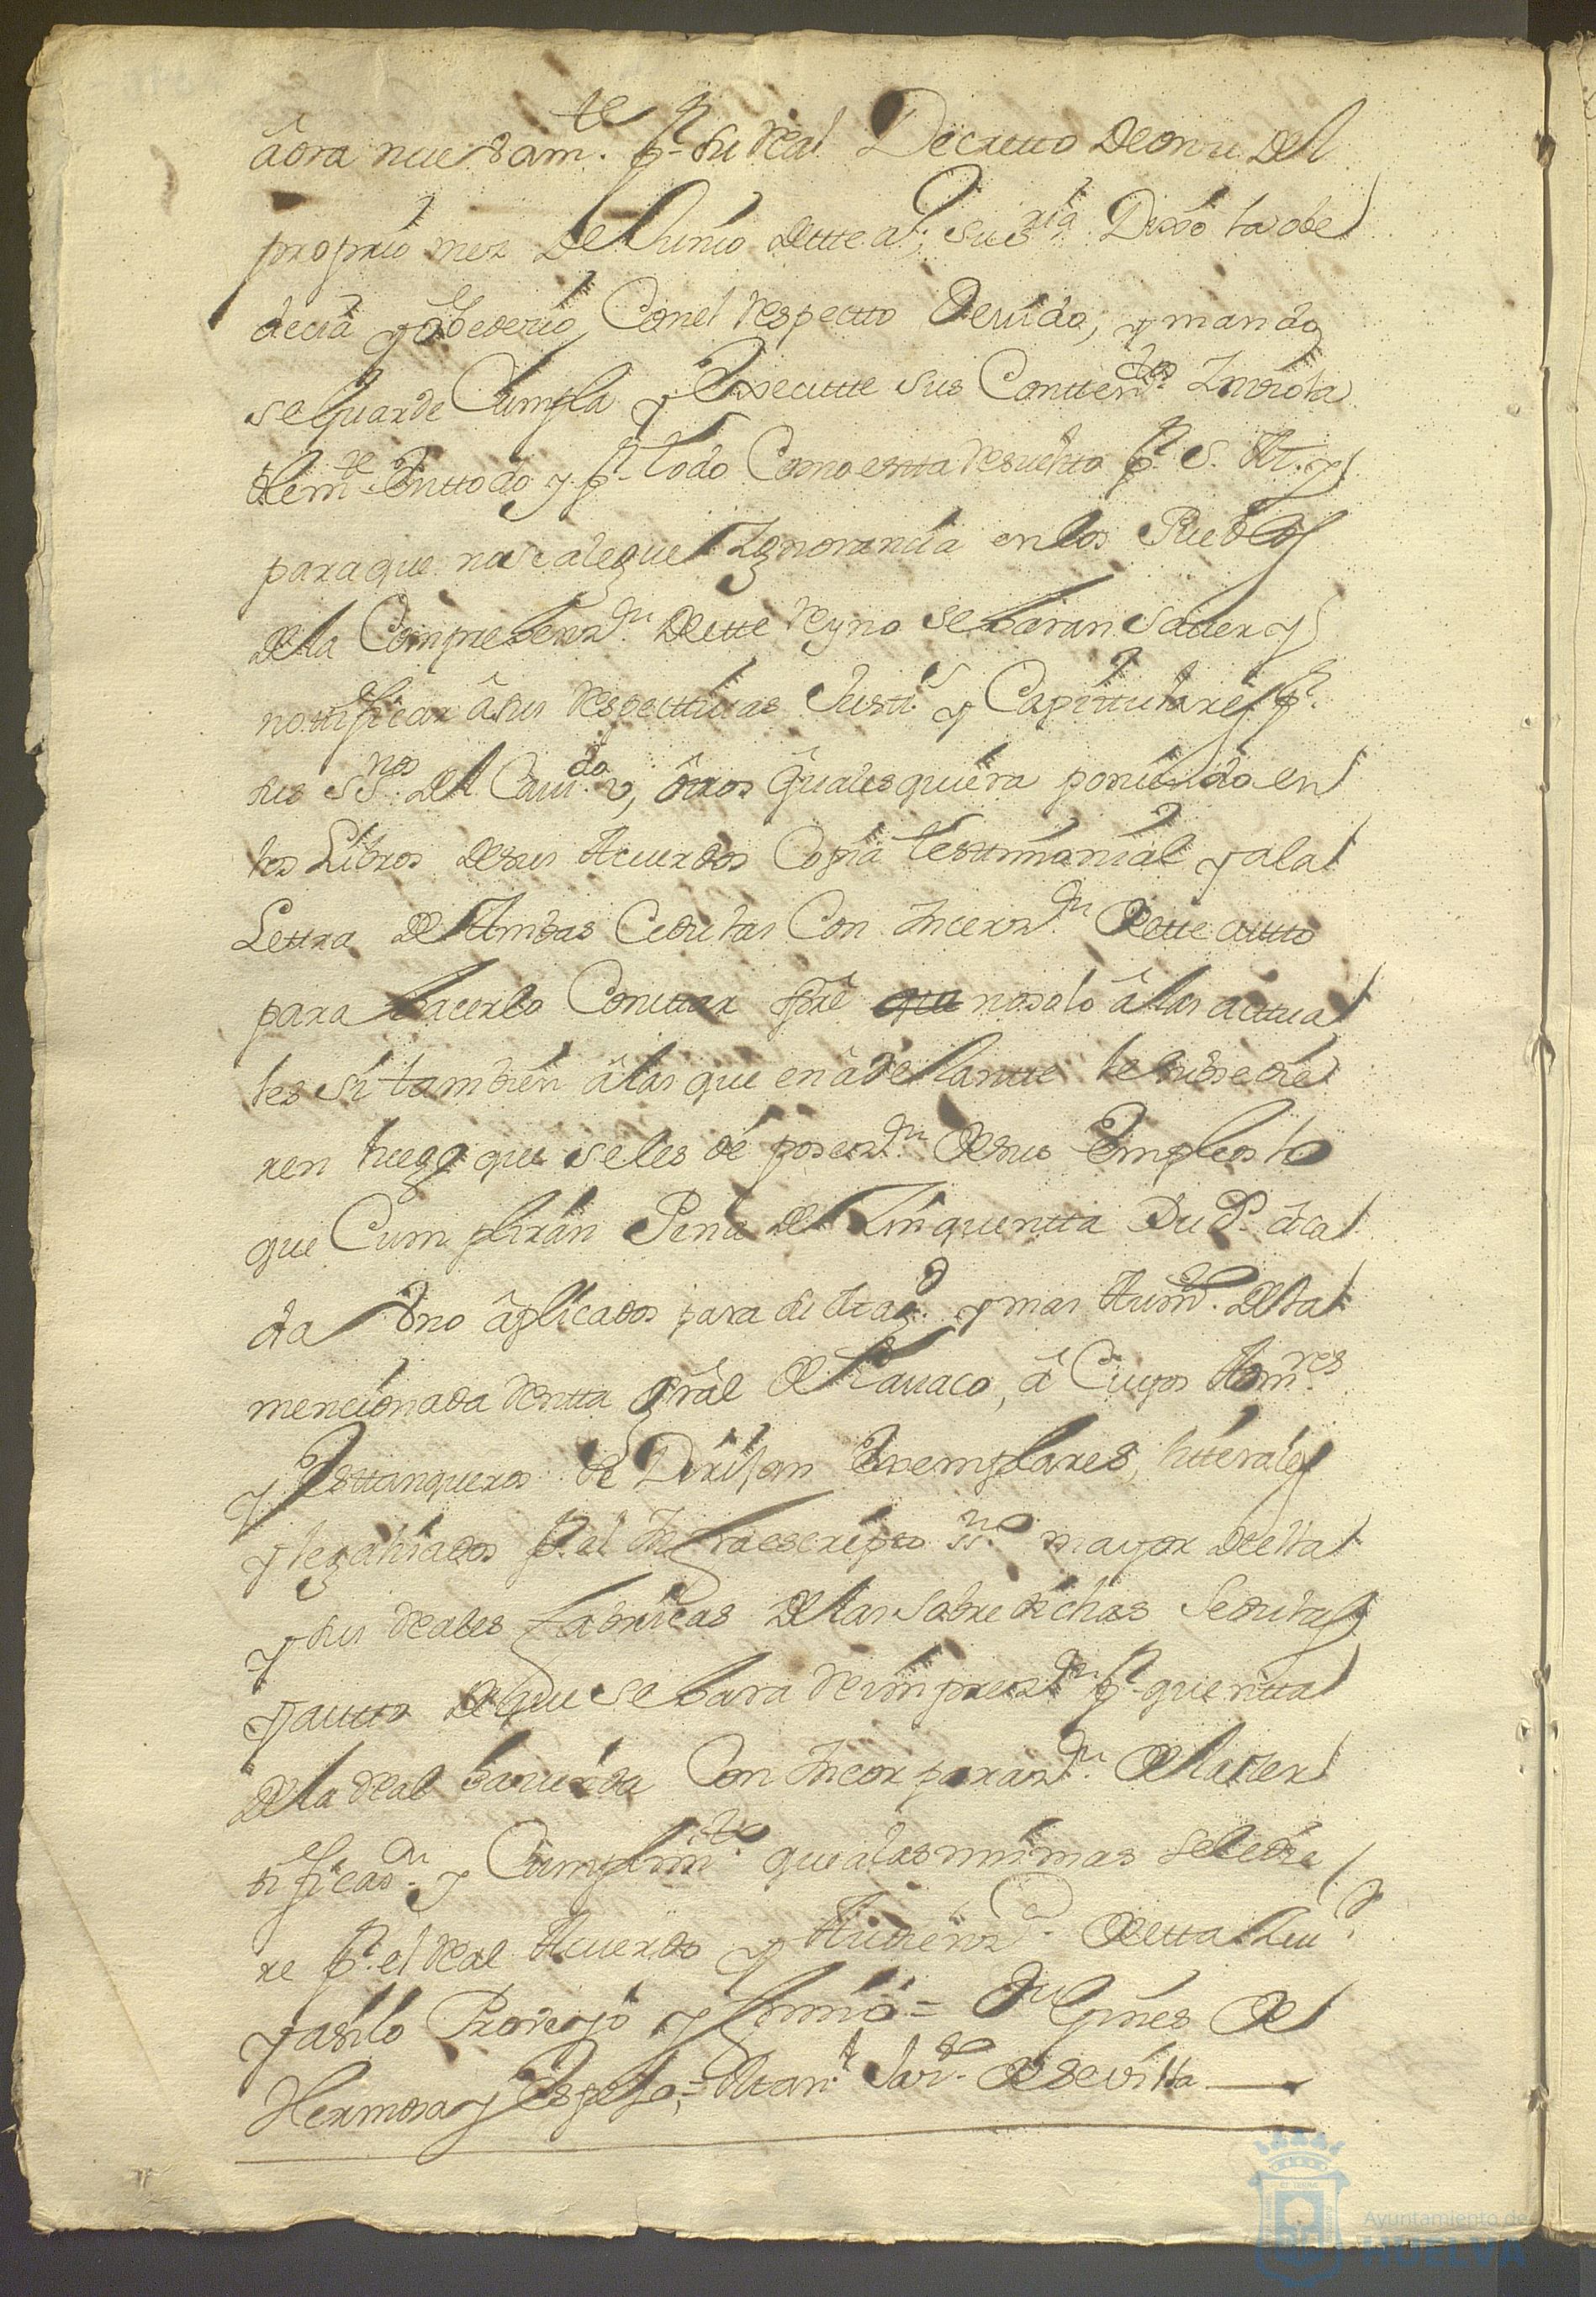 âora nuebam.te p.r su Real Decretto de onze del
proprio mez de Junio deste a.o, su s.ria Dixo la obe
decia y obedecio Con el respectto devido, y mando
se Guarde Cumpla y Executte sus Contten.dos Inviola
blem.te En ttodo y p.r todo Como estta resuelto p.r S. M. y
para que no se alegue Ygnorancia en los Pueblos
de la Comprehenz.on deste Reyno se haran saver y
nottificar â sus respecttivas Justt.s y Capittulares p.r
sus ss.nos del Cavi.do v, ôtros qualesquiera poniendo en
los Libros de sus Acuerdos Copia testimonial y a la
Lettra de Ambas Cedulas Con Incerz.on deste autto
para hacerlo Constar spre no solo â los acttua
les si tambien â los que en âdelantte le subcedie
ren luego que se les dé posez.on de sus Empleos lo
que Cumplirán Pena de Zinquentta Du.s â ca
da Uno âplicados para su Mag.d y mas Aum.to de la
mencionada Rentta Grâl de Tavaco, â Cuyos Adm.res
y Esttanqueros se Dirijan Exemplares, literales
y legaliados p.r el Infraescripto ss.no mayor de ella
y sus Reales fabricas de las sobre dichas Sedulas
y autto de que se hara Reimprez.on p.r quentta
de la Real hacienda Con Incorporaz.on de la zer
tificaz.on y Cumplim.to que a las mismas se le die
re p.r el Real Acuerdo y Audienz.a de esta Ciu.d
y asi lo Proveyo y firmo = D.n Gines de
Hermosa y Espejo, = Man.l Jav.r de Sevilla
Ayuntamiento de
HUELVA